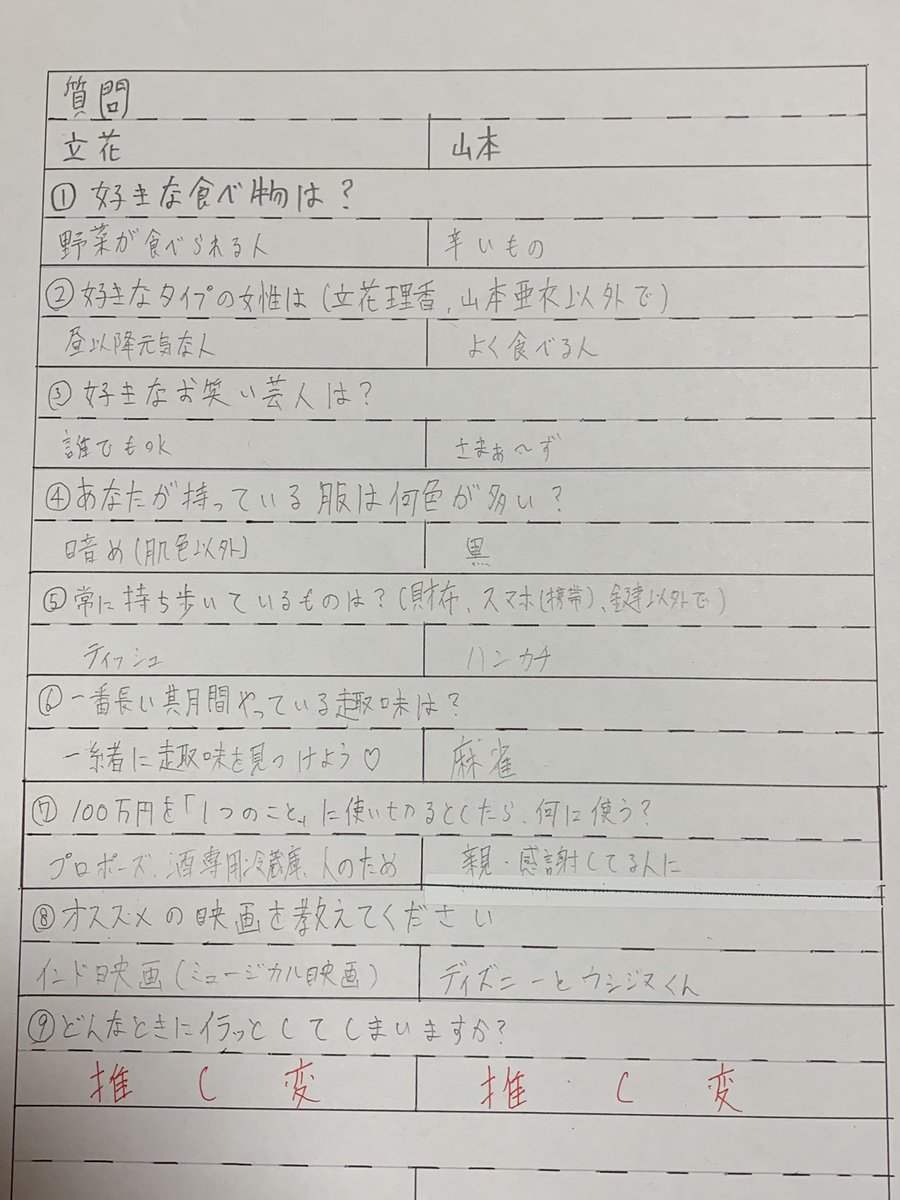 質問
立花 山本
① 好きな食べ物は?
野菜が食べられる人 辛いもの
② 好きなタイプの女性は(立花理香、山本亜衣以外で)
昼以降元気な人 よく食べる人
③ 好きなお笑い芸人は?
誰でもOK さまぁ〜ず
④ あなたが持っている服は何色が多い?
暗め(肌色以外) 黒
⑤ 常に持ち歩いているものは?(財布、スマホ(携帯)、鍵以外で)
ティッシュ ハンカチ
⑥ 一番長い期間やっている趣味は?
一緒に趣味を見つけよう♡ 麻雀
⑦ 100万円を「1つのこと」に使いきるとしたら、何に使う?
プロポーズ、酒専用冷蔵庫、人のため 親・感謝してる人に
⑧ オススメの映画を教えてください
インド映画(ミュージカル映画) ディズニーとウシジマくん
⑨ どんなときにイラッとしてしまいますか?
推し変 推し変